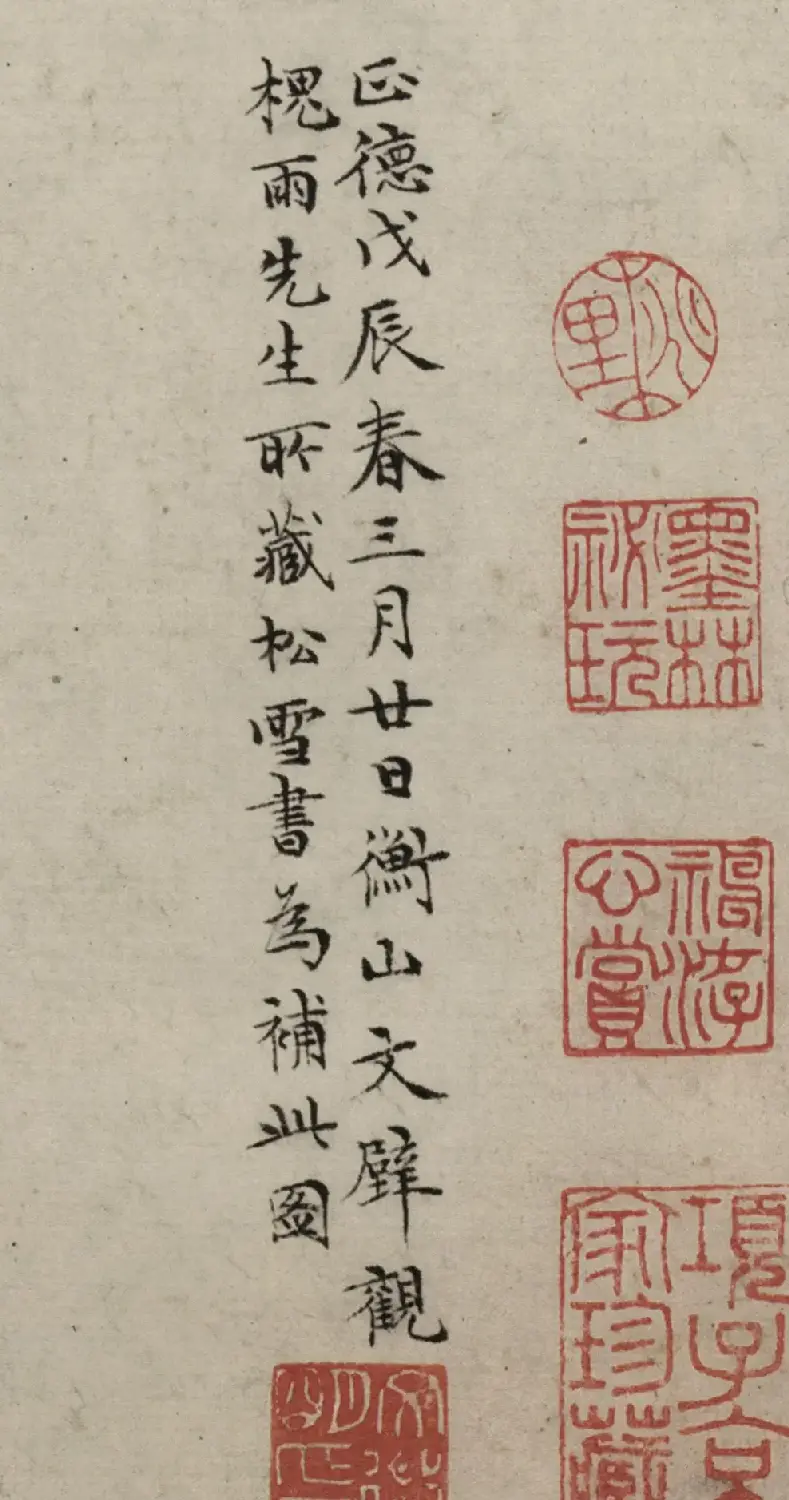 墨林
祕玩
神游
心賞
項子京
家珍藏
正德戊辰春三月廿日衡山文壁觀
槐雨先生所藏松雪書為補此圖